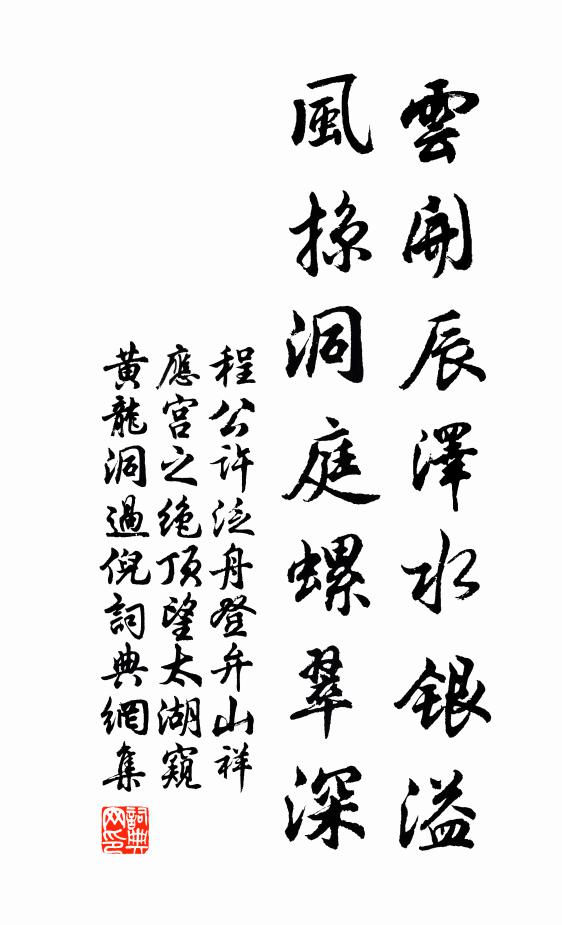 雲開辰澤水銀溢
風掠洞庭螺翠深
程公許泛舟登弁山祥
應宮之絶頂望太湖窺
黃龍洞過倪詞典網集
詞典
网印